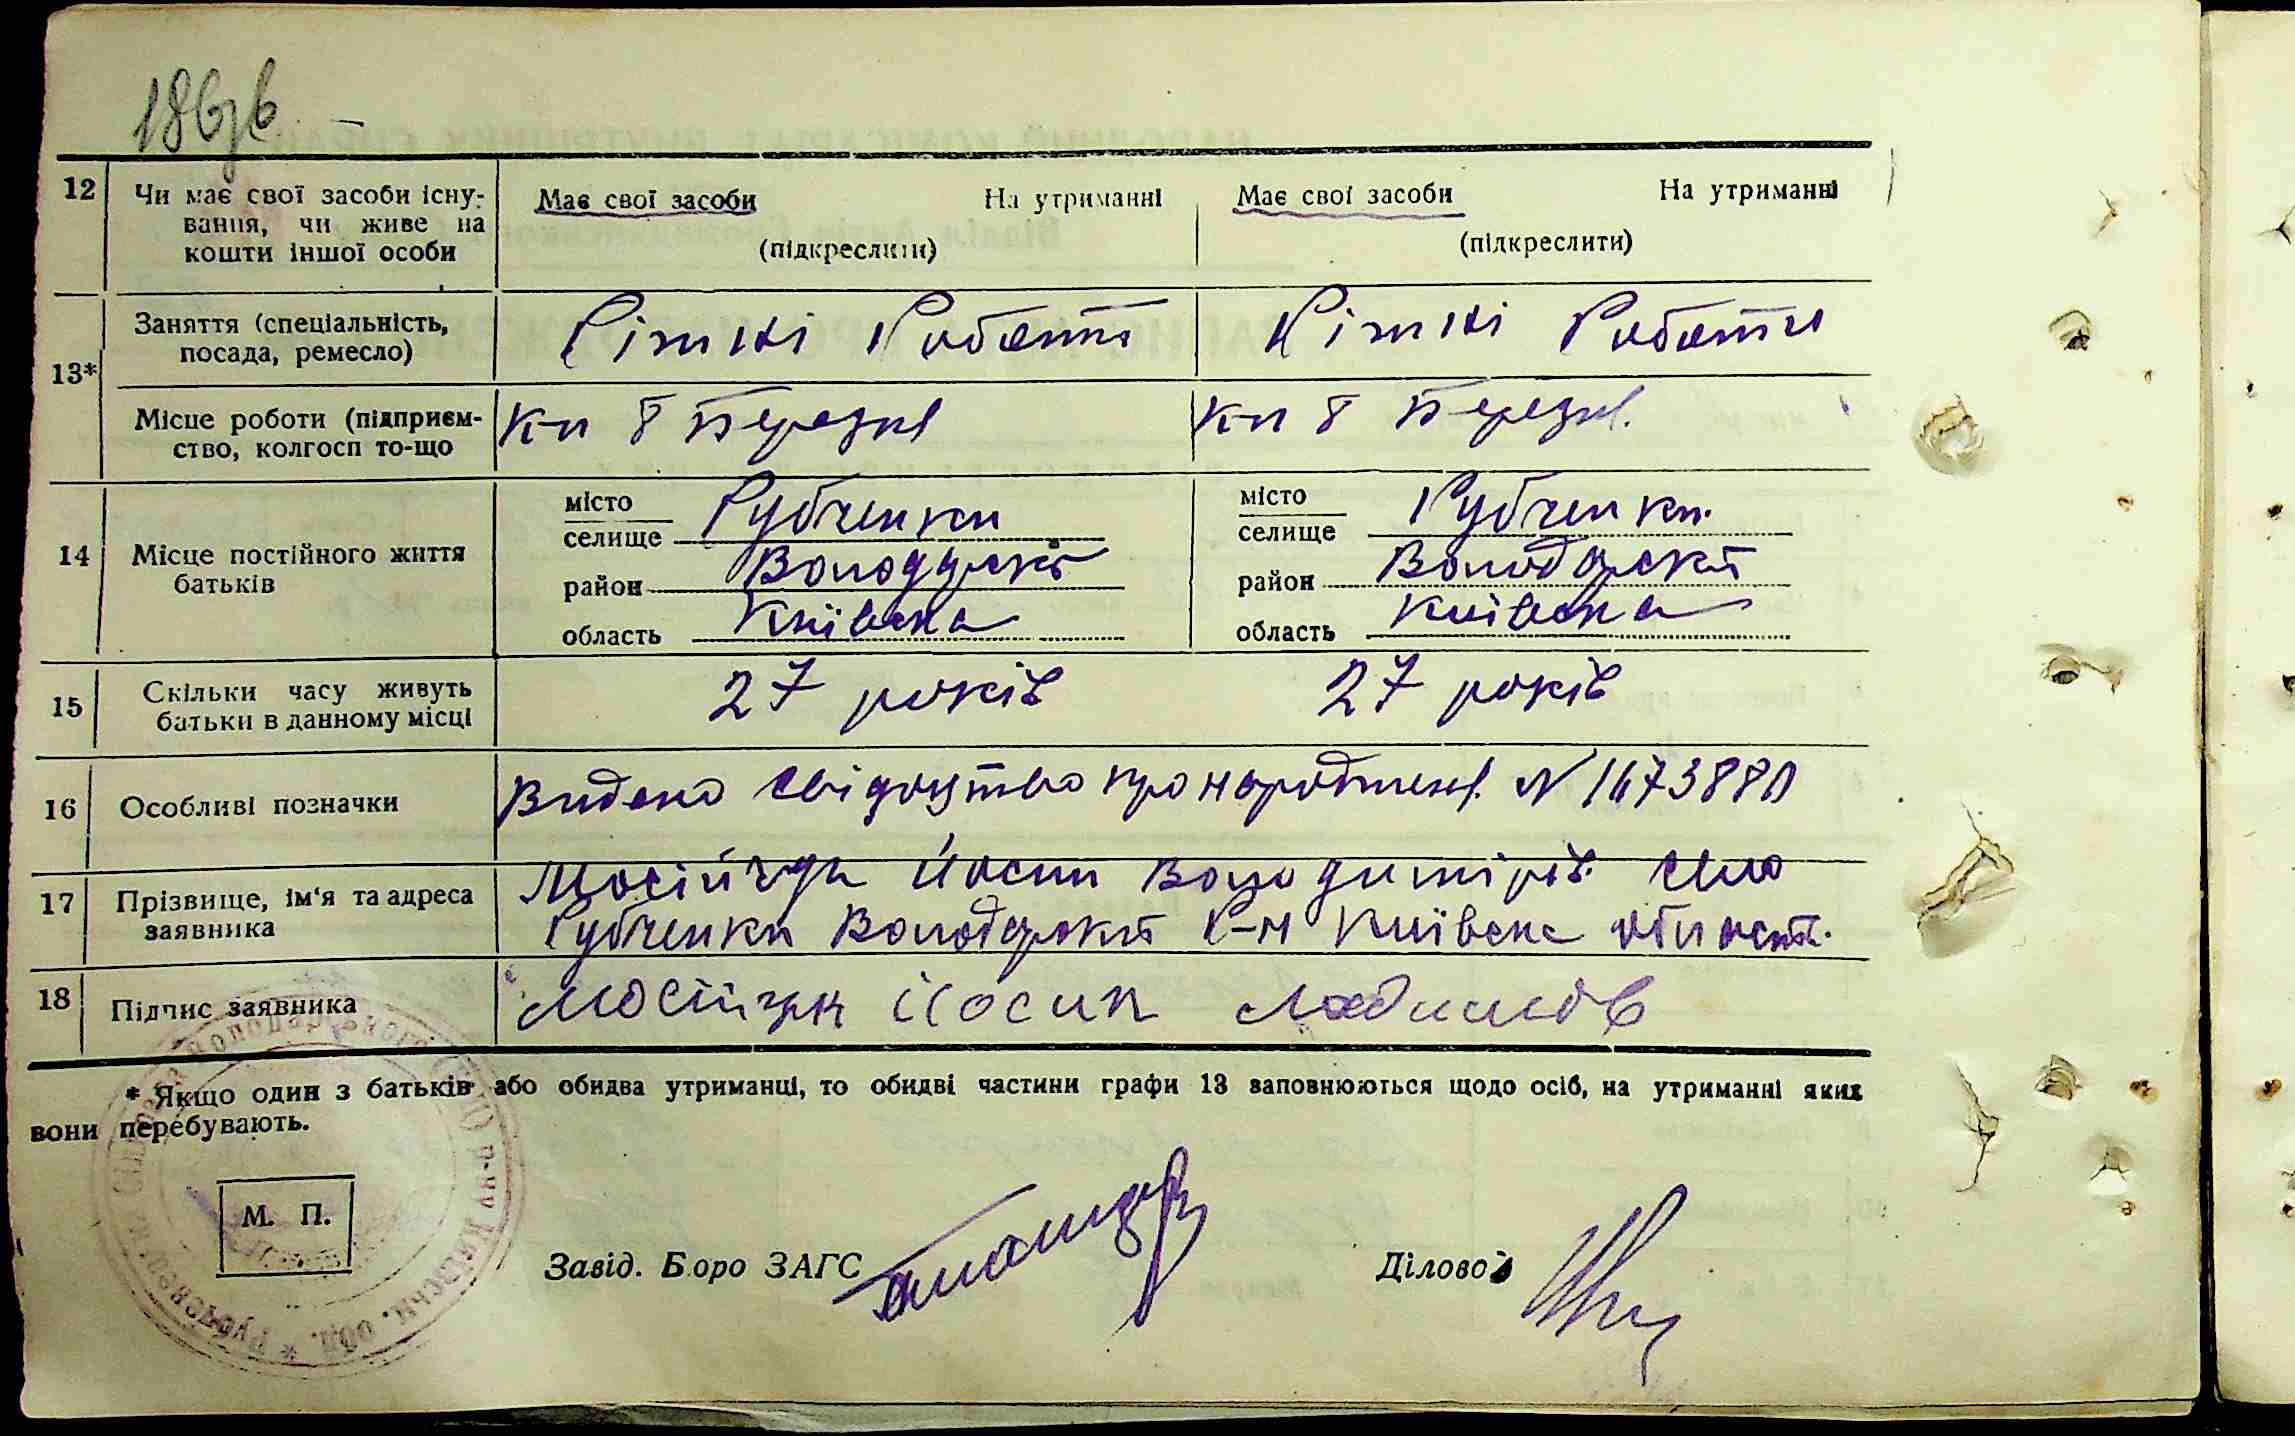 186зв
12 Чи має свої засоби існу-
вання, чи живе на
кошти іншої особи
Має свої засоби На утриманні Має свої засоби На утриманні
(підкреслити) (підкреслити)
13* Заняття (спеціальність,
посада, ремесло)
Різниі Роботи Різниі Роботи
Місце роботи (підприєм-
ство, колгосп то-що
К-п 8 Березня К-п 8 Березн.
14 Місце постійного життя
батьків
місто
селище Рубченки
район Володарскі
область Київска
місто
селище Рубченки.
район Володарскі
область Київска
15 Скільки часу живуть
батьки в данному місці
27 років 27 років
16 Особливі позначки
Видено свідоцтво про народжен. N
17 Прізвище, ім'я та адреса
заявника
Мосійчук Йосип Володимірів. село
Рубченки Володарскі Р-н Київска област.
18 Підпис заявника
Мосійчук Йосип
* Якщо один з батьків або обидва утриманці, то обидві частини графи 13 заповнюються щодо осіб, на утриманні яких
вони перебувають.
М. П.
Завід. Бюро ЗАГС
Діловод